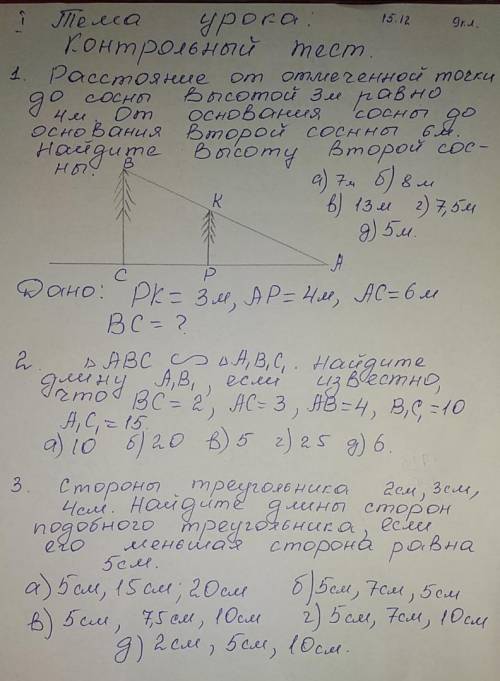 I Тема урока: 15.12 9кл.
Контрольный тест.
1. Расстояние от отмеченной точки
до сосны высотой 3м равно
4м. От основания сосны до
основания второй соснны 6м.
Найдите высоту второй сос-
ны.
а) 7м б) 8м
в) 13м г) 7,5м
д) 5м.
B
K
C P A
Дано: PK = 3м, AP = 4м, AC = 6м
BC = ?
2. △ABC ∽ △A₁B₁C₁. Найдите
длину A₁B₁, если известно,
что BC = 2, AC = 3, AB = 4, B₁C₁ = 10
A₁C₁ = 15.
а) 10 б) 20 в) 5 г) 25 д) 6.
3. Стороны треугольника 2см, 3см,
4см. Найдите длины сторон
подобного треугольника, если
его меньшая сторона равна
5см.
а) 5см, 15см; 20см б) 5см, 7см, 5см
в) 5см, 7,5см, 10см г) 5см, 7см, 10см
д) 2см, 5см, 10см.